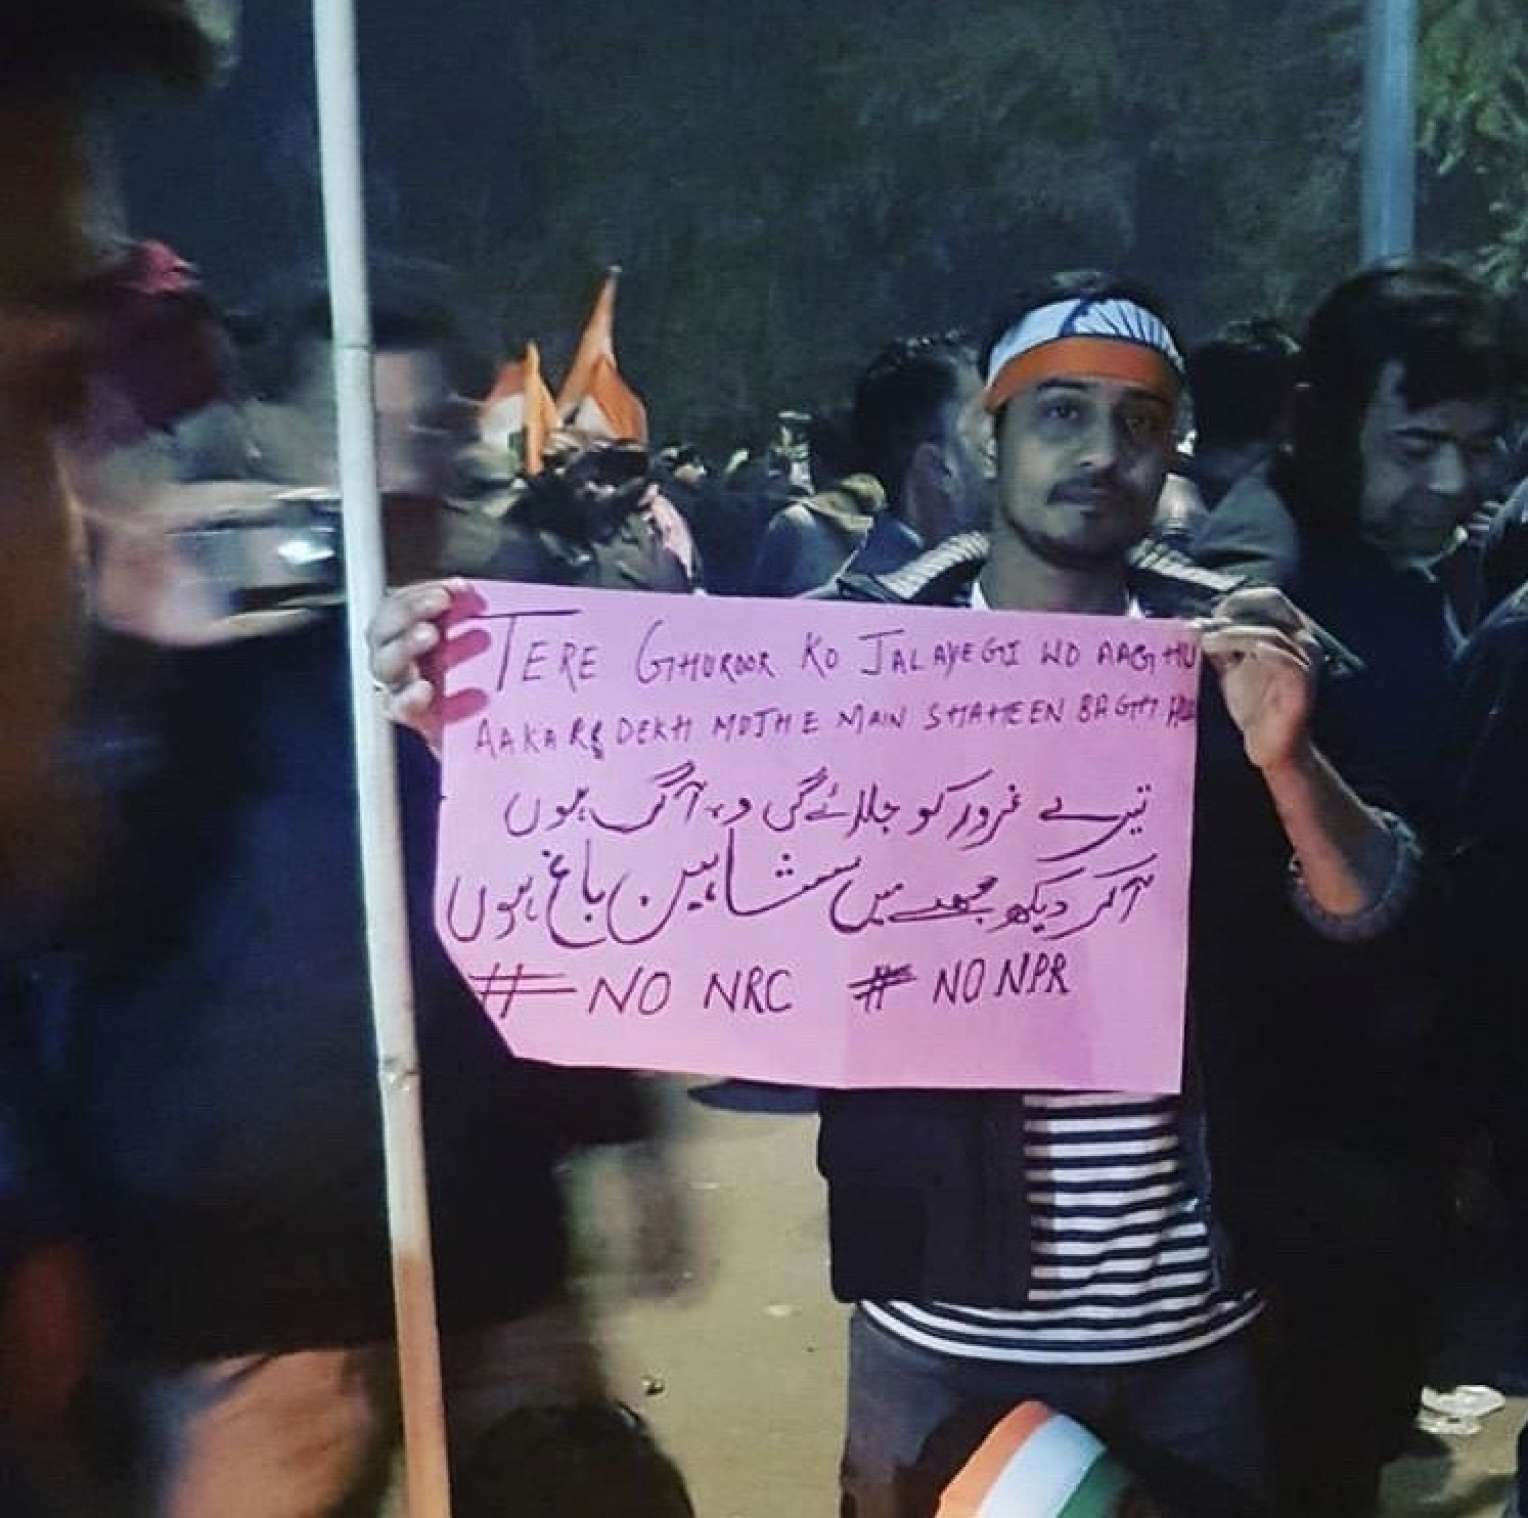 TERE GHUROOR KO JALAYEGI WO AAG HU
AAKAR DEKH MUJHE MAIN SHAHEEN BAGH HU
تیرے غرور کو جلائے گی وہ آگ ہوں
آکر دیکھ مجھے میں شاہین باغ ہوں
# NO NRC # NO NPR